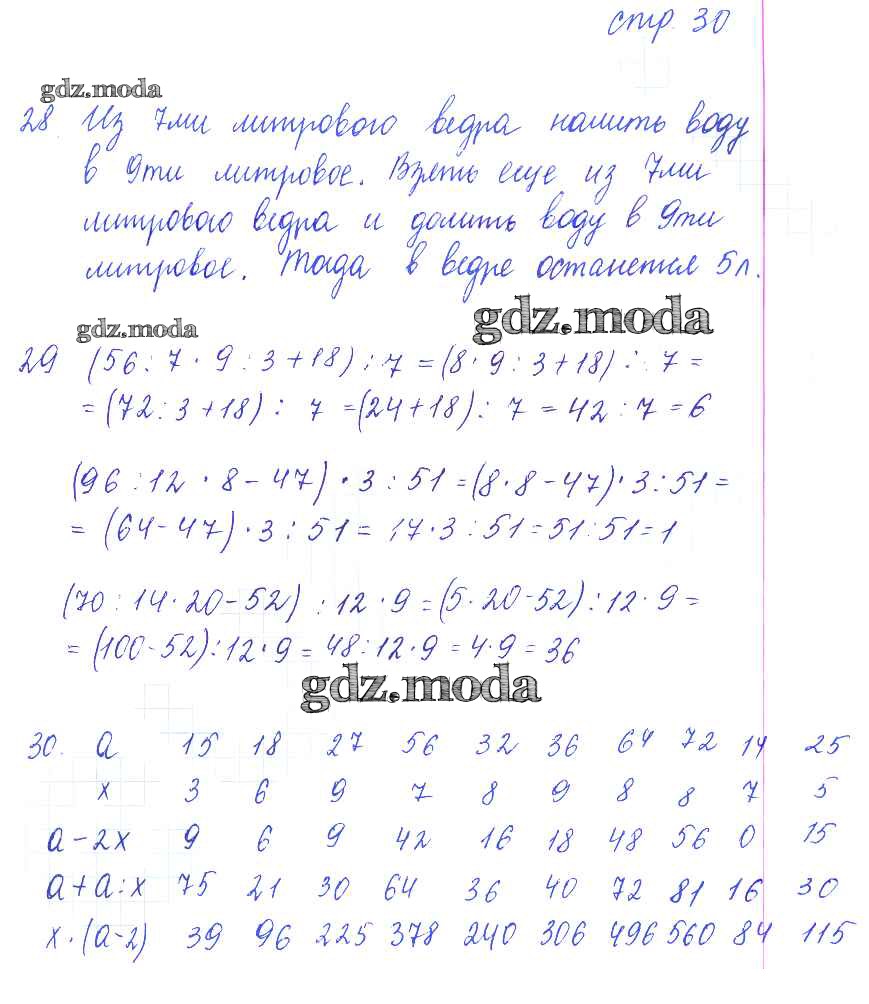 стр. 30
gdz.moda
28. Из 7ми литрового ведра налить воду
в 9ти литровое. Взять еще из 7ми
литрового ведра и долить воду в 9ти
литровое. Тогда в ведре останется 5л.
gdz.moda
gdz.moda
29 (56 : 7 · 9 : 3 + 18) : 7 = (8 · 9 : 3 + 18) : 7 =
= (72 : 3 + 18) : 7 = (24 + 18) : 7 = 42 : 7 = 6
(96 : 12 · 8 - 47) · 3 : 51 = (8 · 8 - 47) · 3 : 51 =
= (64 - 47) · 3 : 51 = 17 · 3 : 51 = 51 : 51 = 1
(70 : 14 · 20 - 52) : 12 · 9 = (5 · 20 - 52) : 12 · 9 =
= (100 - 52) : 12 · 9 = 48 : 12 · 9 = 4 · 9 = 36
gdz.moda
30. a 15 18 27 56 32 36 64 72 14 25
x 3 6 9 7 8 9 8 8 7 5
a - 2x 9 6 9 42 16 18 48 56 0 15
a + a : x 75 21 30 64 36 40 72 81 16 30
x · (a - 2) 39 96 225 378 240 306 496 560 84 115